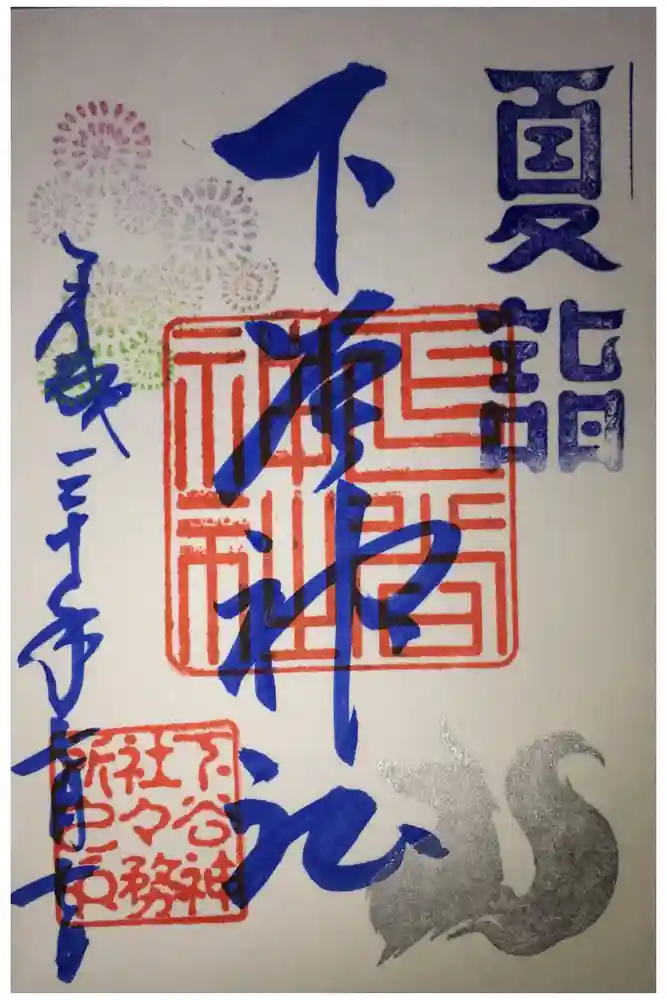 夏詣
下谷神社
下谷
神社
平成三十年七月
下谷神
社々務
所之印